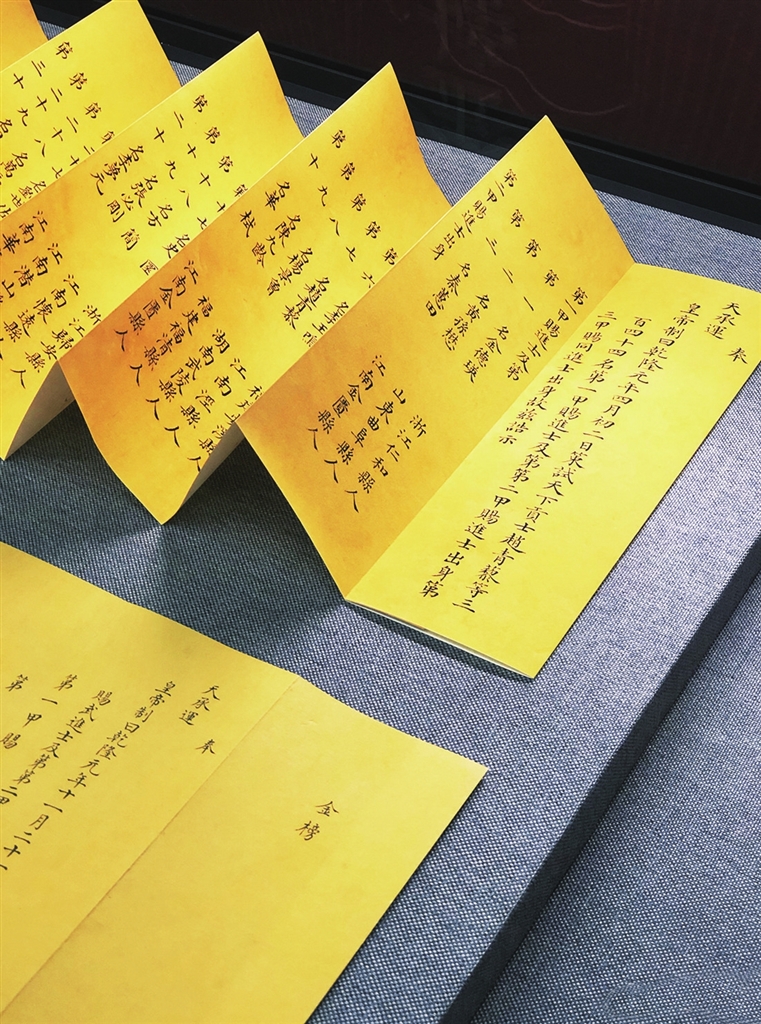 天承運 奉
皇帝制曰乾隆元年四月初二日策試天下貢士趙青藜等三
百四十四名第一甲賜進士及第第二甲賜進士出身第
三甲賜同進士出身故茲誥示
第一甲賜進士及第
第一名金德瑛 浙江仁和縣人
第二名黃孫懋 山東曲阜縣人
第三名秦蕙田 江南金匱縣人
第二甲賜進士出身
第六名
第七名趙青藜 江南涇縣人
第八名楊 湖南武陵縣人
第九名陳九齡 福建福清縣人
第十名華栻 江南金匱縣人
第十七名史
第十八名方簡 江南懷遠縣人
第十九名張必剛 江南潛山縣人
第二十名李夢 江南
第二十七
第二十八名
第二十九名
第三十
金榜
天承運 奉
皇帝制曰乾隆元年十一月二十
賜武進士及第第二甲
第一甲賜
第